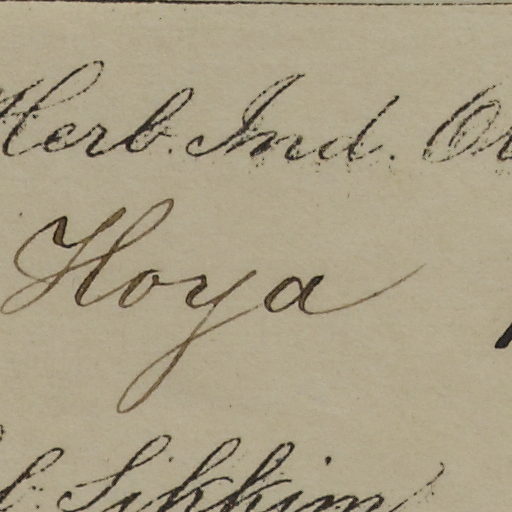 Herb. Ind. Or
Hoya
Sikkim